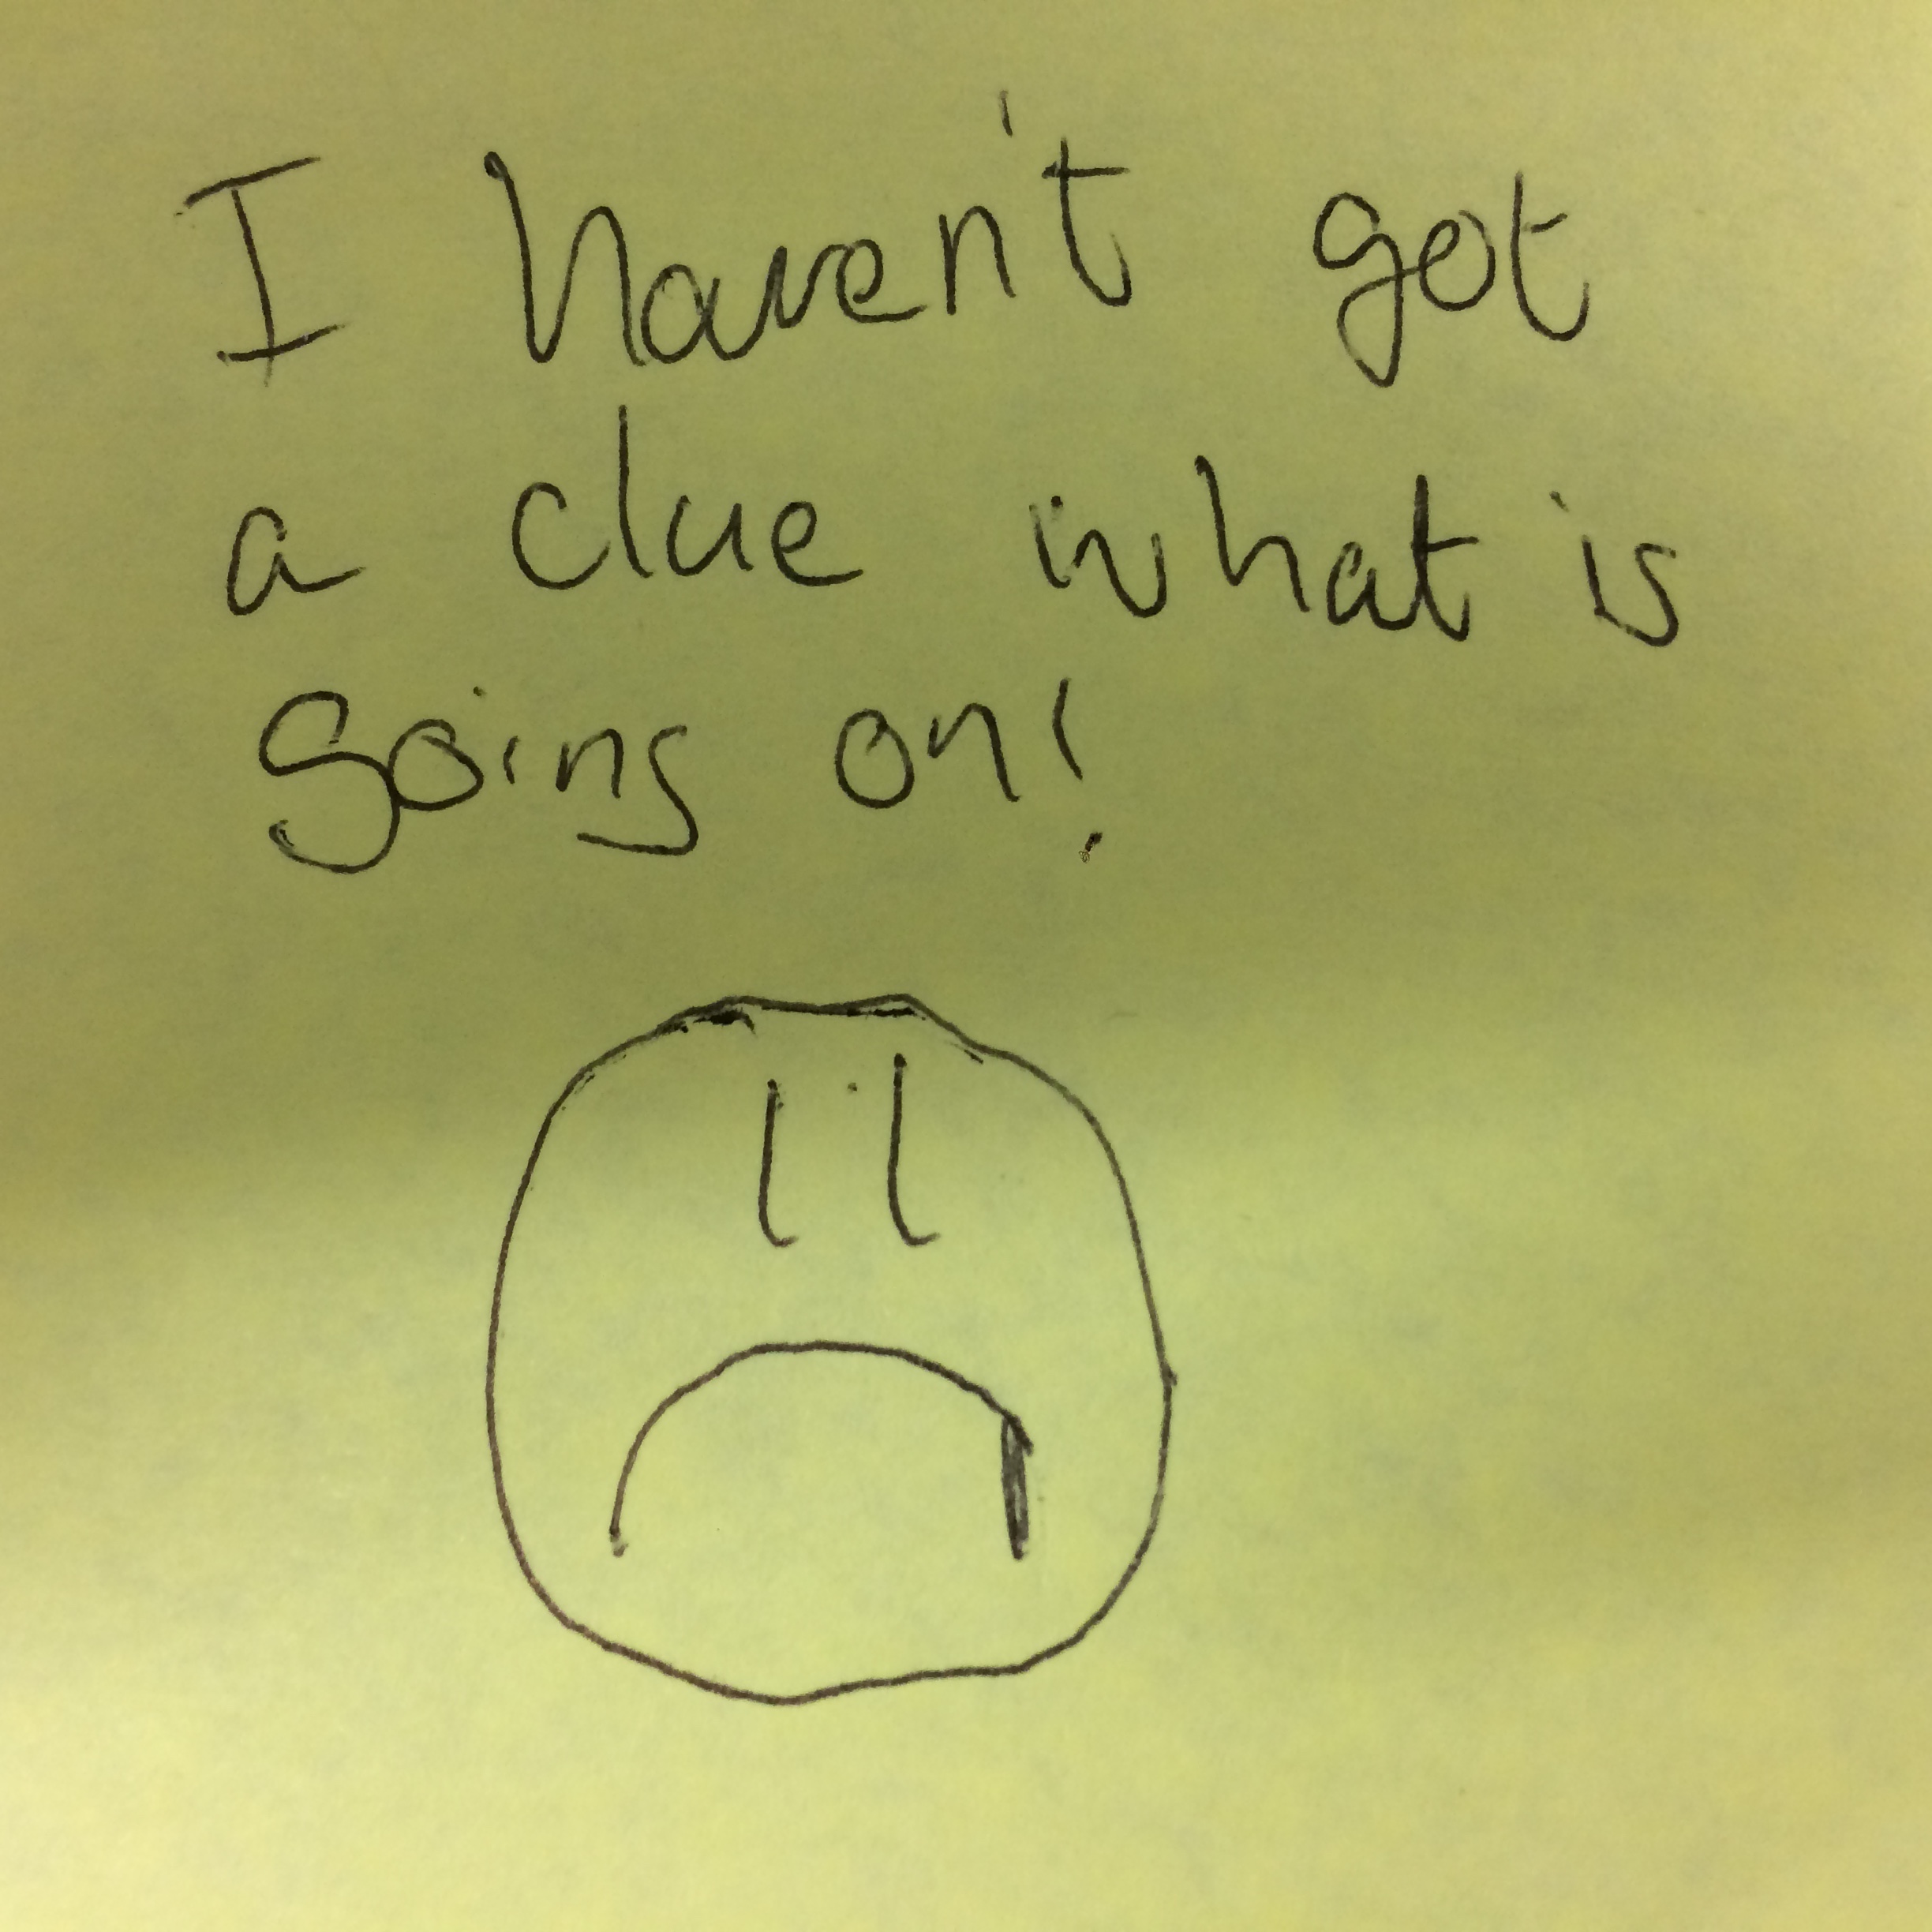 I haven't got
a clue what is
going on!